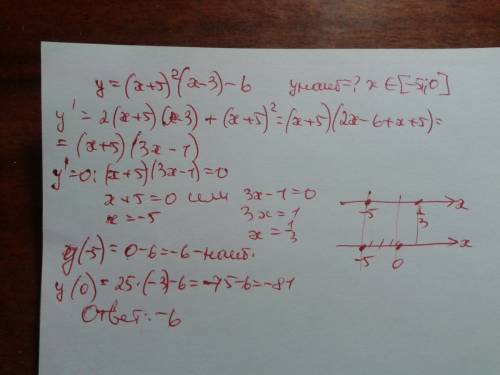 y=(x+5)²(x-3)-6 yнаиб=? x∈[-5;0]
y'=2(x+5)(x-3)+(x+5)²=(x+5)(2x-6+x+5)=
=(x+5)(3x-1)
y'=0: (x+5)(3x-1)=0
x+5=0 или 3x-1=0
x=-5 3x=1
x=1/3
-5 1/3 x
y(-5)=0-6=-6-наиб.
-5 0 x
y(0)=25·(-3)-6=-75-6=-81
Ответ:-6